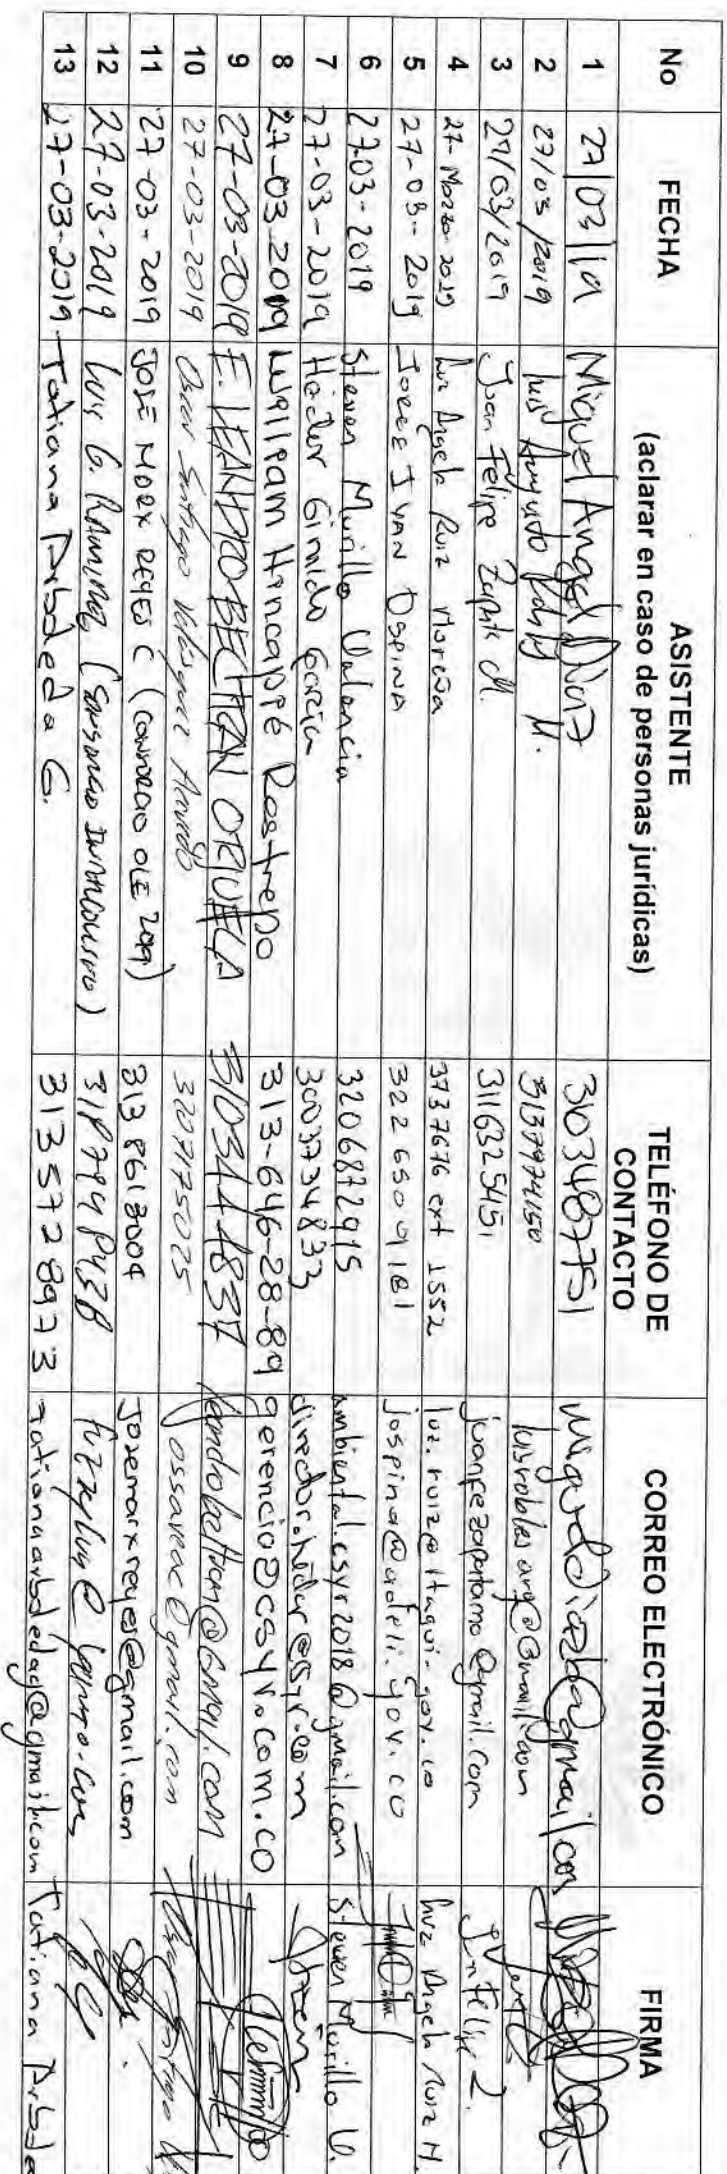 No FECHA ASISTENTE (aclarar en caso de personas jurídicas) TELÉFONO DE CONTACTO CORREO ELECTRÓNICO FIRMA
1 27/03/19 Miguel Angel Diaz 3103487751 migueldiazb@gmail.com
2 27/03/2019 Luis Augusto M. luisroblesarq@gmail.com
3 27/03/2019 Juan Felipe Zapata M. 3116325451 juanfezapatamo@gmail.com
4 27-Marzo-2019 Luz Angela Ruiz Moreña 3737676 ext 1552 luz.ruiz@itagui.gov.co Luz Angela Ruiz M.
5 27-03-2019 Jorge IVAN OSPINA 322 650 9181 jospina@adeli.gov.co
6 27-03-2019 Steven Murillo Valencia 3206872915 ambiental.csyr2018@gmail.com Steven Murillo V.
7 27-03-2019 Hader Giraldo Garcia 3003734833
8 27-03-2019 William Hincapié Restrepo 313-646-28-89 gerencia@csyr.com.co
9 27-03-2019 F. LEANDRO BELTRAN ORIUELA 3103444837 leandrobeltran@GMAIL.COM
10 27-03-2019 Oscar Santiago Velásquez Acevedo 3207175025 ossaveac@gmail.com
11 27-03-2019 JOSE MARX REYES C (CONSORCIO OLE 2019) 313 8613004 Josemarxreyes@gmail.com
12 27-03-2019 LUIS G. RAMIREZ
13 27-03-2019 Tatiana Arboleda G. 313 572 8973 Tatianaarboledag@gmail.com Tatiana Arbole